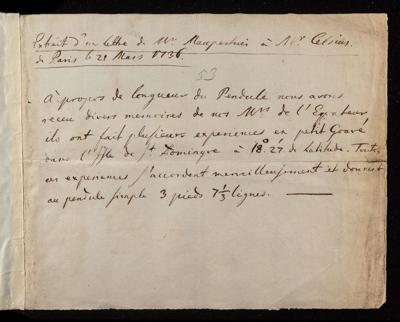 Extrait d'un lettre de Mr. Maupertuis à Mr. Celsius
de Paris le 21 Mars 1736.
53
À propos de longueur du Pendule nous avons
receu divers memoires de nos Mrs. de l'Equateur
ils ont fait plusieurs experiences en petit Goave
dans l'Isle de St Domingue à 18° 27' de Latitude. Toutes
ces experiences s'accordent merveilleusement et donnent
au pendule simple 3 pieds 7 1/3 lignes.